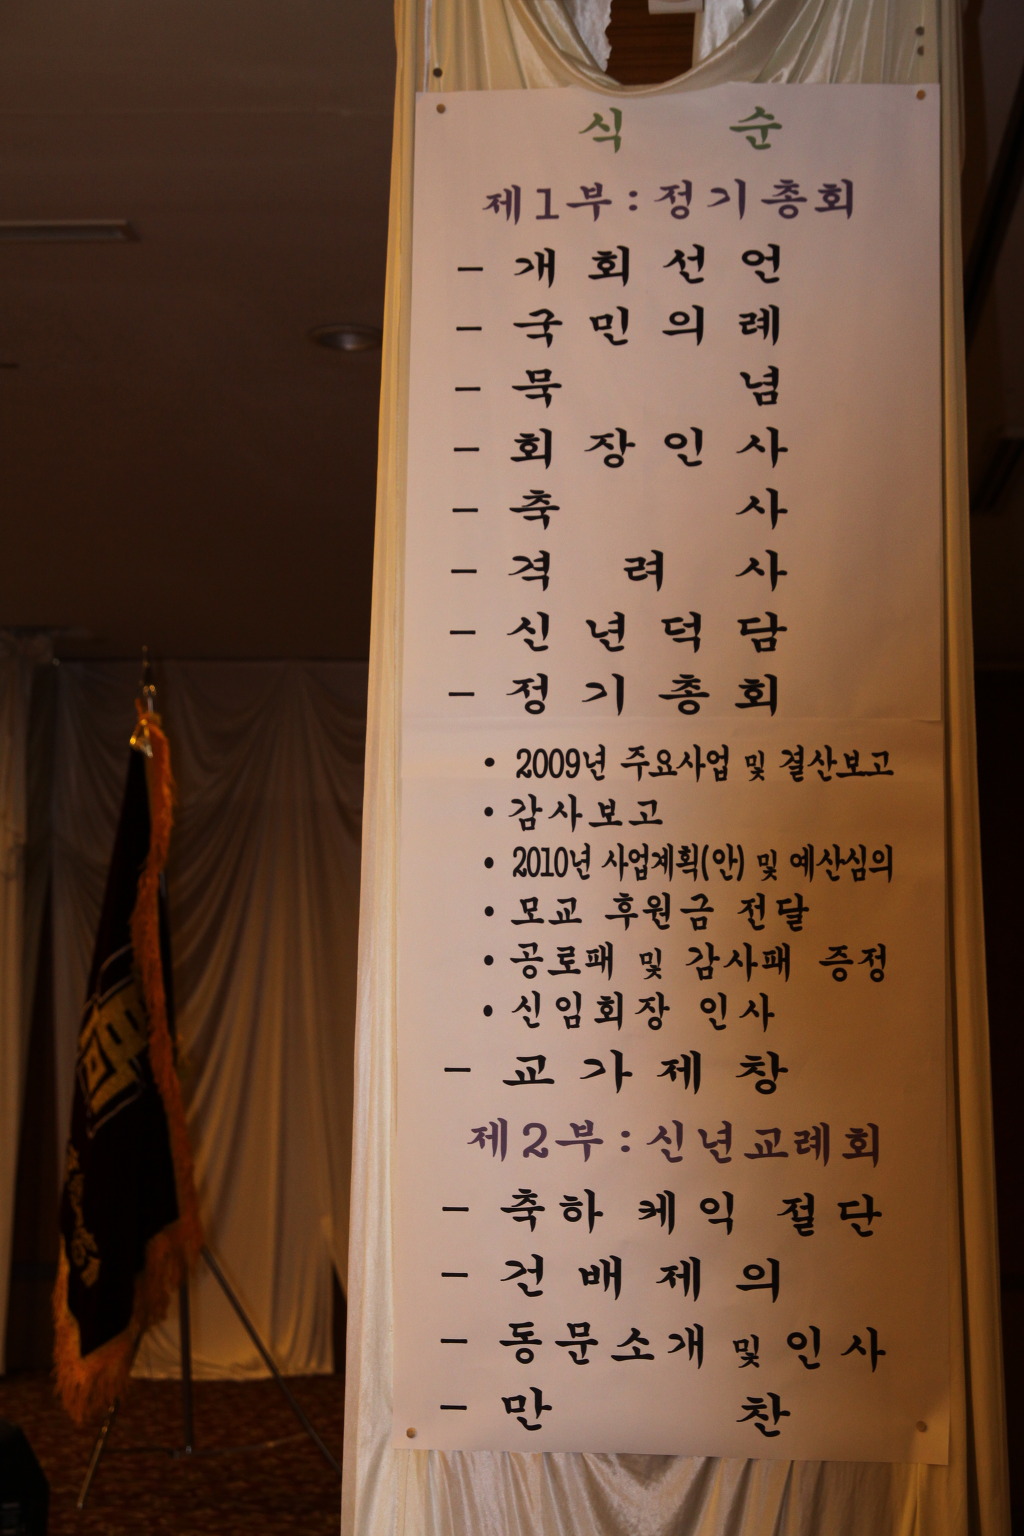 식 순
제1부:정기총회
- 개회선언
- 국민의례
- 묵념
- 회장인사
- 축사
- 격려사
- 신년덕담
- 정기총회
• 2009년 주요사업 및 결산보고
• 감사보고
• 2010년 사업계획(안) 및 예산심의
• 모교 후원금 전달
• 공로패 및 감사패 증정
• 신임회장 인사
- 교가제창
제2부:신년교례회
- 축하케익 절단
- 건배제의
- 동문소개 및 인사
- 만찬